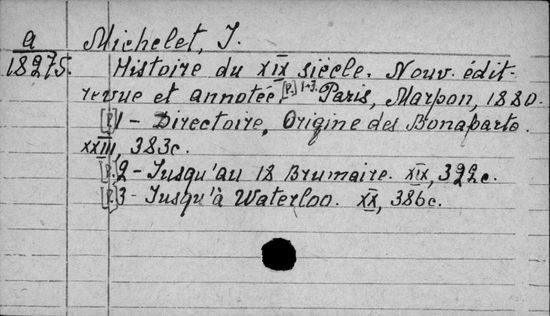 a Michelet, J.
18275. Histoire du XIX siècle. Nouv. édit-
revue et annotée [р. 1-3.] Paris, Marpon, 1880.
[р.] 1 - Directoire, Origine des Bonaparte.
XXIII, 383с.
[р.] 2 - Jusqu'au 18 Brumaire. XIX, 322с.
[р.] 3 - Jusqu'à Waterloo. XX, 386с.